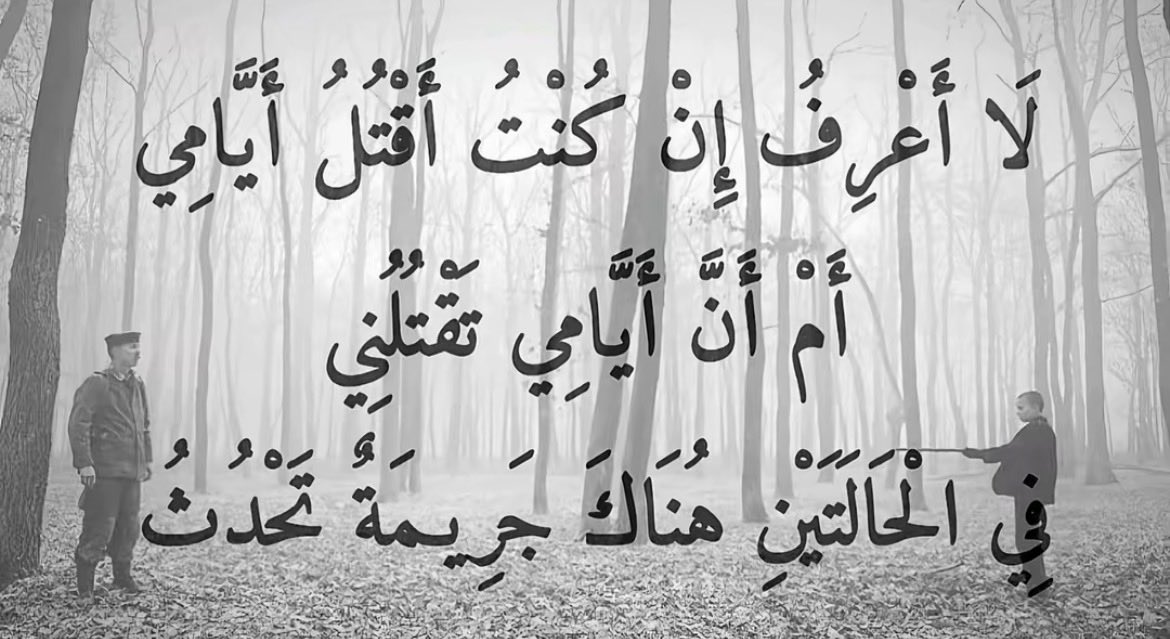 لَا أَعْرِفُ إِنْ كُنْتُ أَقْتُلُ أَيَّامِي
أَمْ أَنَّ أَيَّامِي تَقْتُلُنِي
فِي الْحَالَتَيْنِ هُنَاكَ جَرِيمَةٌ تَحْدُثُ